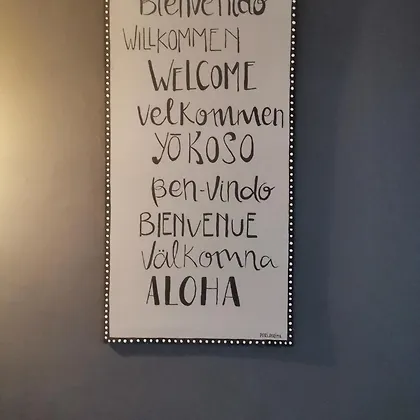 Bienvenido
WILLKOMMEN
WELCOME
velkommen
YŌKOSO
Ben-vindo
BIENVENUE
Välkomna
ALOHA